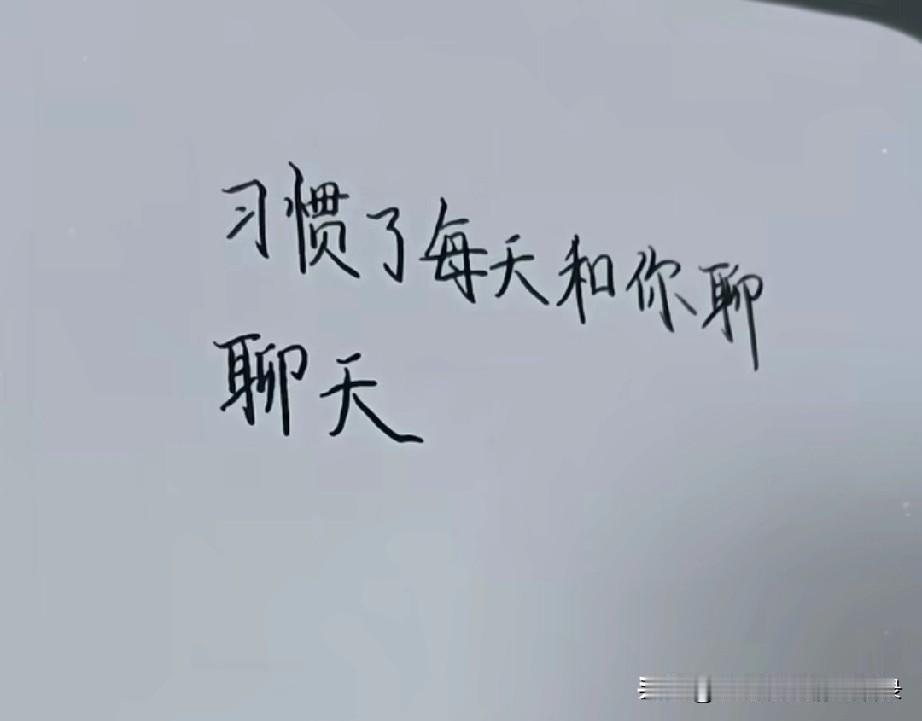 习惯了每天和你聊
聊天